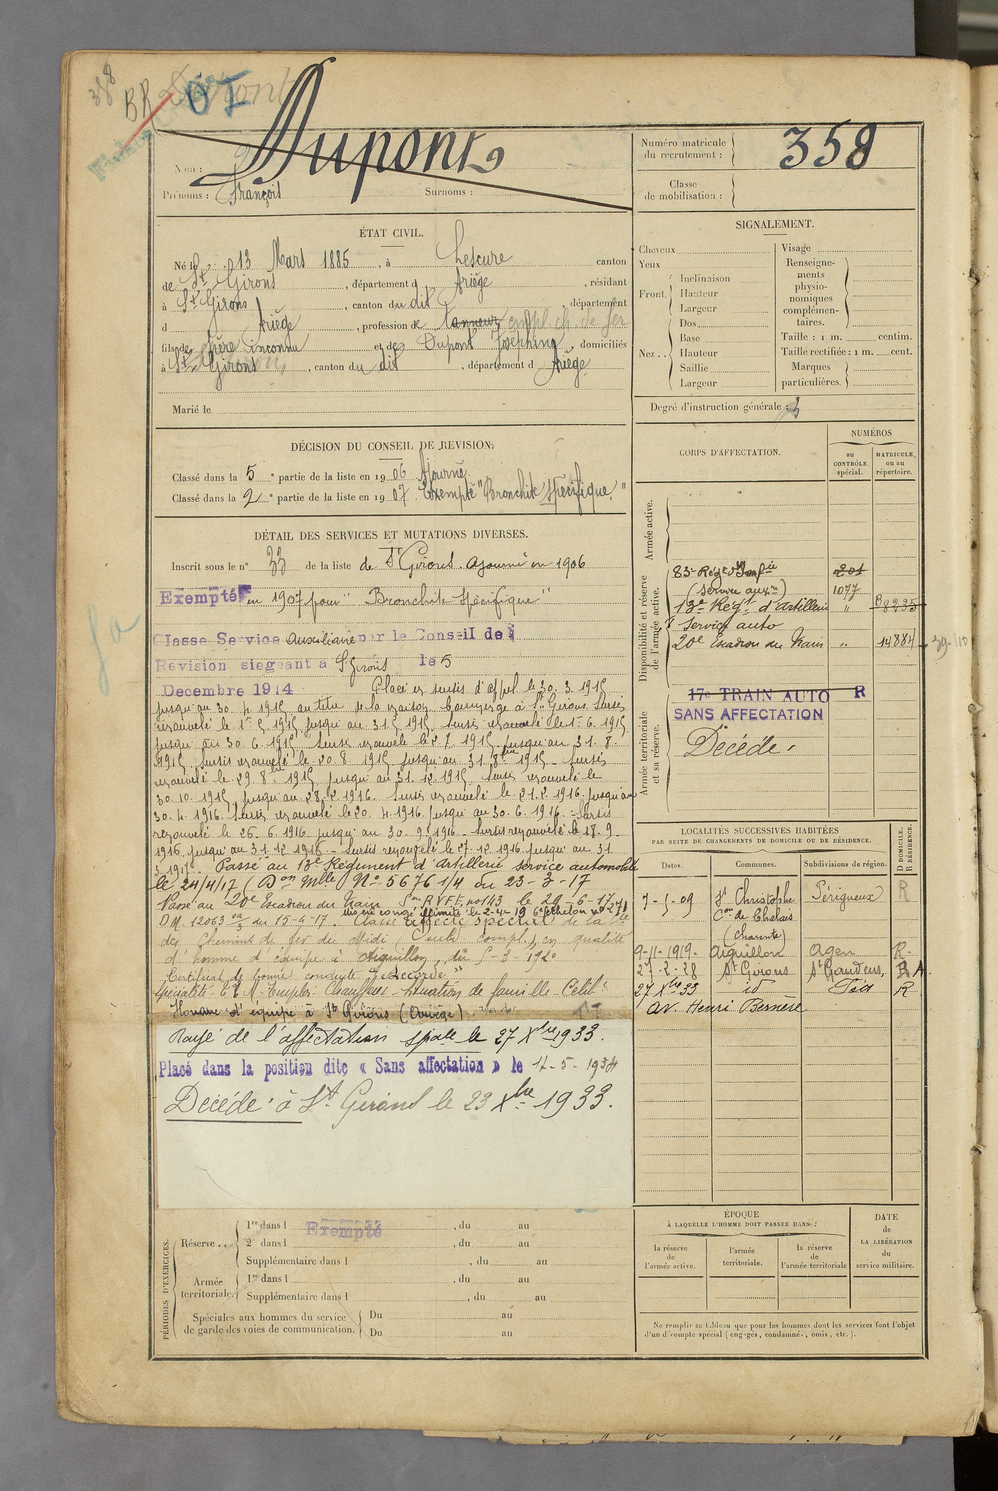 358
BR
OI
Dupont
Nom :
Prénoms : François Surnoms :
Numéro matricule du recrutement : 358
Classe de mobilisation :
ÉTAT CIVIL.
Né le 13 Mars 1885, à Lescure canton
de St Girons, département d Ariège, résidant
à St Girons, canton du dit, département
d Ariège, profession de tanneur empl. ch. de fer
fils de père inconnu et de Dupont Joséphine, domiciliés
à St Girons, canton du dit, département d Ariège
Marié le
SIGNALEMENT.
Cheveux
Yeux
Front. Inclinaison
Hauteur
Largeur
Nez .. Dos
Base
Hauteur
Saillie
Largeur
Visage
Renseigne-
ments
physio-
nomiques
complémen-
taires.
Taille : 1 m. centim.
Taille rectifiée : 1 m. cent.
Marques
particulières.
Degré d'instruction générale : 3
DÉCISION DU CONSEIL DE REVISION.
Classé dans la 5e partie de la liste en 1906 Ajourné
Classé dans la 2e partie de la liste en 1907 Exempté "Bronchite spécifique"
DÉTAIL DES SERVICES ET MUTATIONS DIVERSES.
Inscrit sous le n° 33 de la liste de St Girons. Ajourné en 1906
Exempté en 1907 pour "Bronchite spécifique"
Classé Service Auxiliaire par le Conseil de
Revision siegeant à St Girons le 5
Decembre 1914 Placé en sursis d'appel le 30.3.1915
jusqu'au 30.4.1915 au titre de la maison à St Girons. Sursis
renouvelé le 1.5.1915 jusqu'au 31.5.1915. Sursis renouvelé le 1.6.1915
jusqu'au 30.6.1915. Sursis renouvelé le 2.7.1915 jusqu'au 31.8.
1915. Sursis renouvelé le 20.8.1915 jusqu'au 31.8bre 1915. Sursis
renouvelé le 29.8bre 1915 jusqu'au 31.12.1915. Sursis renouvelé le
30.10.1915, jusqu'au 28.2.1916. Sursis renouvelé le 21.2.1916 jusqu'au
30.4.1916. Sursis renouvelé le 20.4.1916 jusqu'au 30.6.1916. Sursis
renouvelé le 26.6.1916 jusqu'au 30.9.1916. Sursis renouvelé le 18.9.
1916 jusqu'au 31.12.1916. Sursis renouvelé le 27.12.1916 jusqu'au 31.
3.1917. Passé au 13e Régiment d'artillerie service automobile
le 24/4/17 (Don Mlle No 5676 1/4 du 23-3-17
Passé au 20e Escadron du Train le 29-6-17
D.M. 12063 du 15-6-17. mis en congé illimité le 2-4-19 6e échelon no 2471
Classé affecté spécial de la
des Chemins de fer du Midi (Subd. compl.) en qualité
d'homme d'équipe à Aiguillon, du 5-3-1920
Certificat de bonne conduite "Accordé"
Spécialité Chauffeur Situation de famille Célib.
Homme d'équipe à St Girons (Ariège)
Rayé de l'affectation spale le 27 Xbre 1933.
Placé dans la position dite « Sans affectation » le 14-5-1934
Décédé à St Girons le 23 Xbre 1933.
CORPS D'AFFECTATION.
NUMÉROS
au CONTRÔLE spécial.
MATRICULE, ou au répertoire.
Armée active.
Disponibilité et réserve de l'armée active.
83e Régt d'Infie 201
(Service auxre) 1077
13e Régt d'artillerie " B8235
Service auto
20e Escadron du Train " 14884
Armée territoriale et sa réserve.
17e TRAIN AUTO R
SANS AFFECTATION
Décédé.
LOCALITÉS SUCCESSIVES HABITÉES
PAR SUITE DE CHANGEMENTS DE DOMICILE OU DE RÉSIDENCE.
Dates. Communes. Subdivisions de région. D DOMICILE. R RÉSIDENCE.
7-5-09 St Christophe Périgueux R
Con de Chalais
(Charente)
9-11-1919. Aiguillon Agen R.
27-2-28 St Girons St Gaudens, R A
27 Xbre 33 id R
av. Henri Bernère
PÉRIODES D'EXERCICES.
Réserve .. 1re dans l Exempté, du au
2e dans l , du au
Supplémentaire dans l , du au
Armée territoriale. 1re dans l , du au
Supplémentaire dans l , du au
Spéciales aux hommes du service de garde des voies de communication. Du au
Du au
ÉPOQUE
À LAQUELLE L'HOMME DOIT PASSER DANS :
la réserve de l'armée active.
l'armée territoriale.
la réserve de l'armée territoriale
DATE de LA LIBÉRATION du service militaire.
Ne remplir ce tableau que pour les hommes dont les services font l'objet
d'un décompte spécial (engagés, condamnés, omis, etc.).